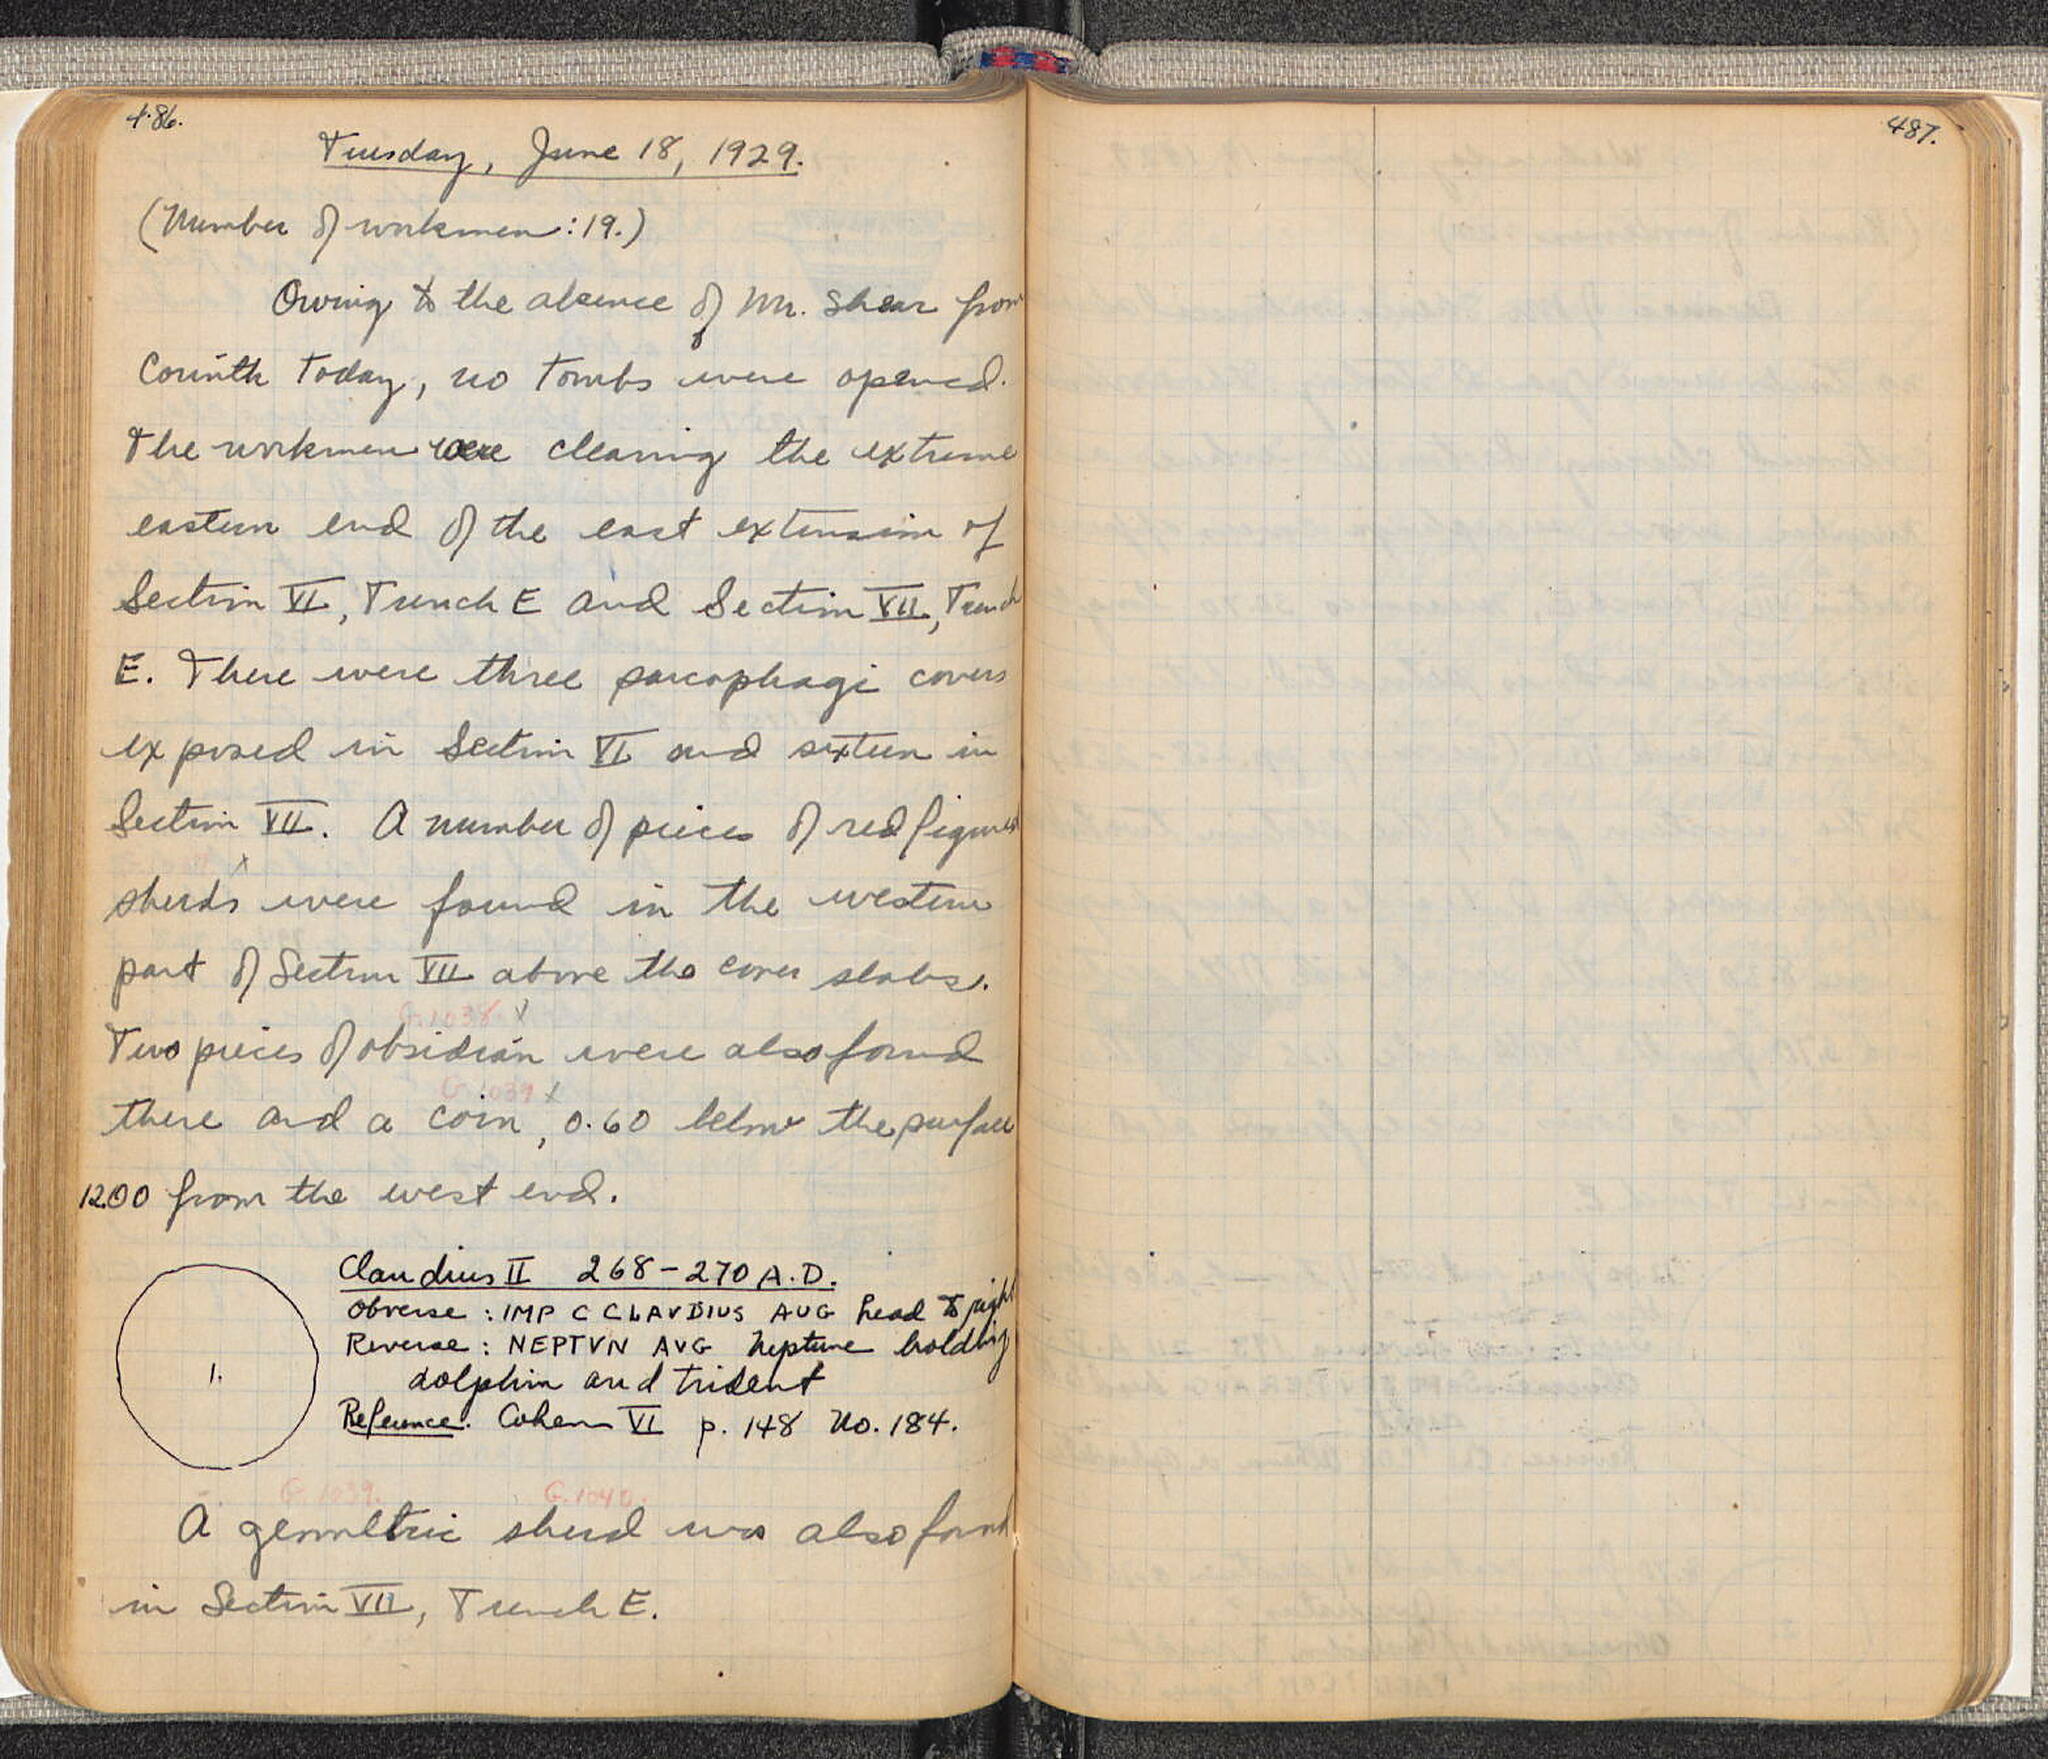 486.
Tuesday, June 18, 1929.
(Number of workmen: 19.)
Owing to the absence of Mr. Shear from
Corinth today, no tombs were opened.
The workmen were clearing the extreme
eastern end of the east extension of
Section VI, Trench E and Section VII, Trench
E. There were three sarcophagi covers
exposed in Section VI and sixteen in
Section VII. A number of pieces of red figured
x
sherds were found in the western
part of Section VII above the cover slabs.
G.1038 x
Two pieces of obsidian were also found
G.1039 x
there and a coin, 0.60 below the surface
12.00 from the west end.
1.
Claudius II 268-270 A.D.
Obverse: IMP C CLAVDIUS AUG head to right
Reverse: NEPTVN AVG Neptune holding
dolphin and trident
Reference. Cohen VI p. 148 No. 184.
G.1039. G.1040.
A geometric sherd was also found
in Section VII, Trench E.
487.